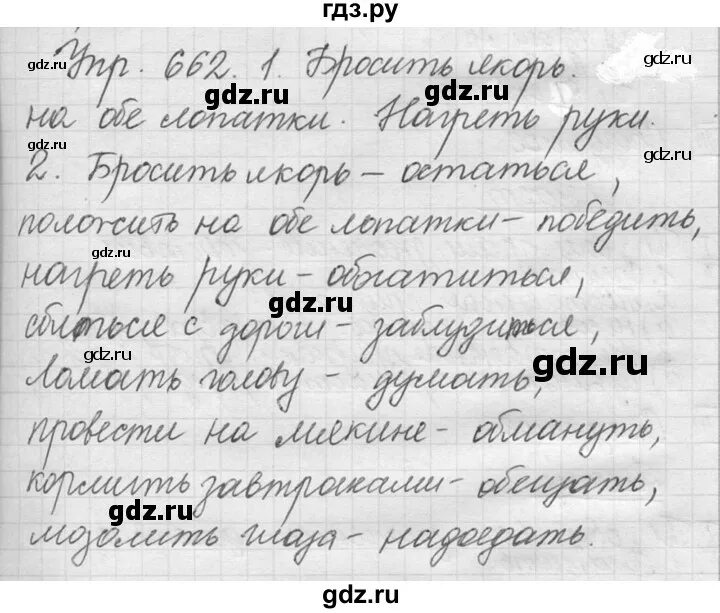 гдз.ру
Упр. 662. 1. Бросить якорь.
на обе лопатки. Нагреть руки.
2. Бросить якорь – остаться,
положить на обе лопатки – победить,
нагреть руки – обогатиться,
сбиться с дороги – заблудиться,
ломать голову – думать,
провести на мякине – обмануть,
кормить завтраками – обещать,
мозолить глаза – надоедать.
gdz.ru
gdz.ru
gdz.ru
gdz.ru
gdz.ru
gdz.ru
gdz.ru
gdz.ru
gdz.ru
gdz.ru
gdz.ru
gdz.ru
gdz.ru